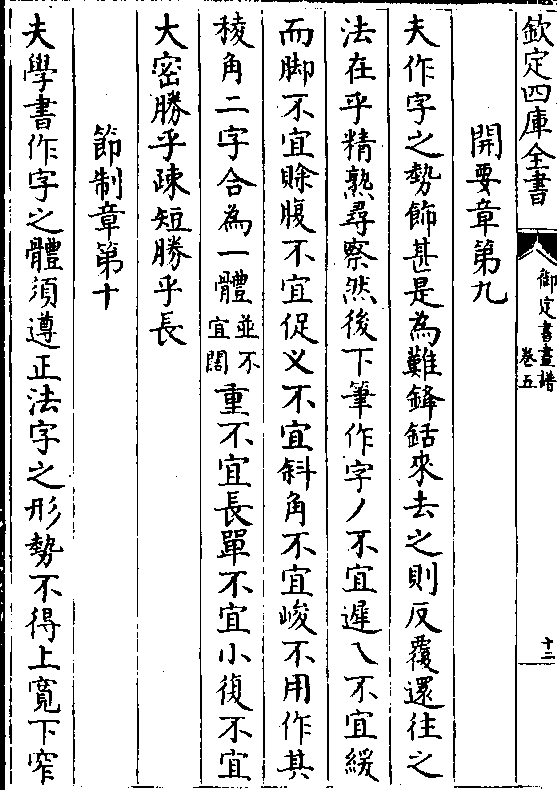 欽定四庫全書
御定書畫譜
卷五
十二
開要章第九
夫作字之勢飭甚是為難鋒銛來去之則反覆還往之
法在乎精熟尋察然後下筆作字丿不宜遲乀不宜緩
而脚不宜賒腹不宜促又不宜斜角不宜峻不用作其
稜角二字合為一體並不宜闊重不宜長單不宜小復不宜
大密勝乎疎短勝乎長
節制章第十
夫學書作字之體須遵正法字之形勢不得上寬下窄